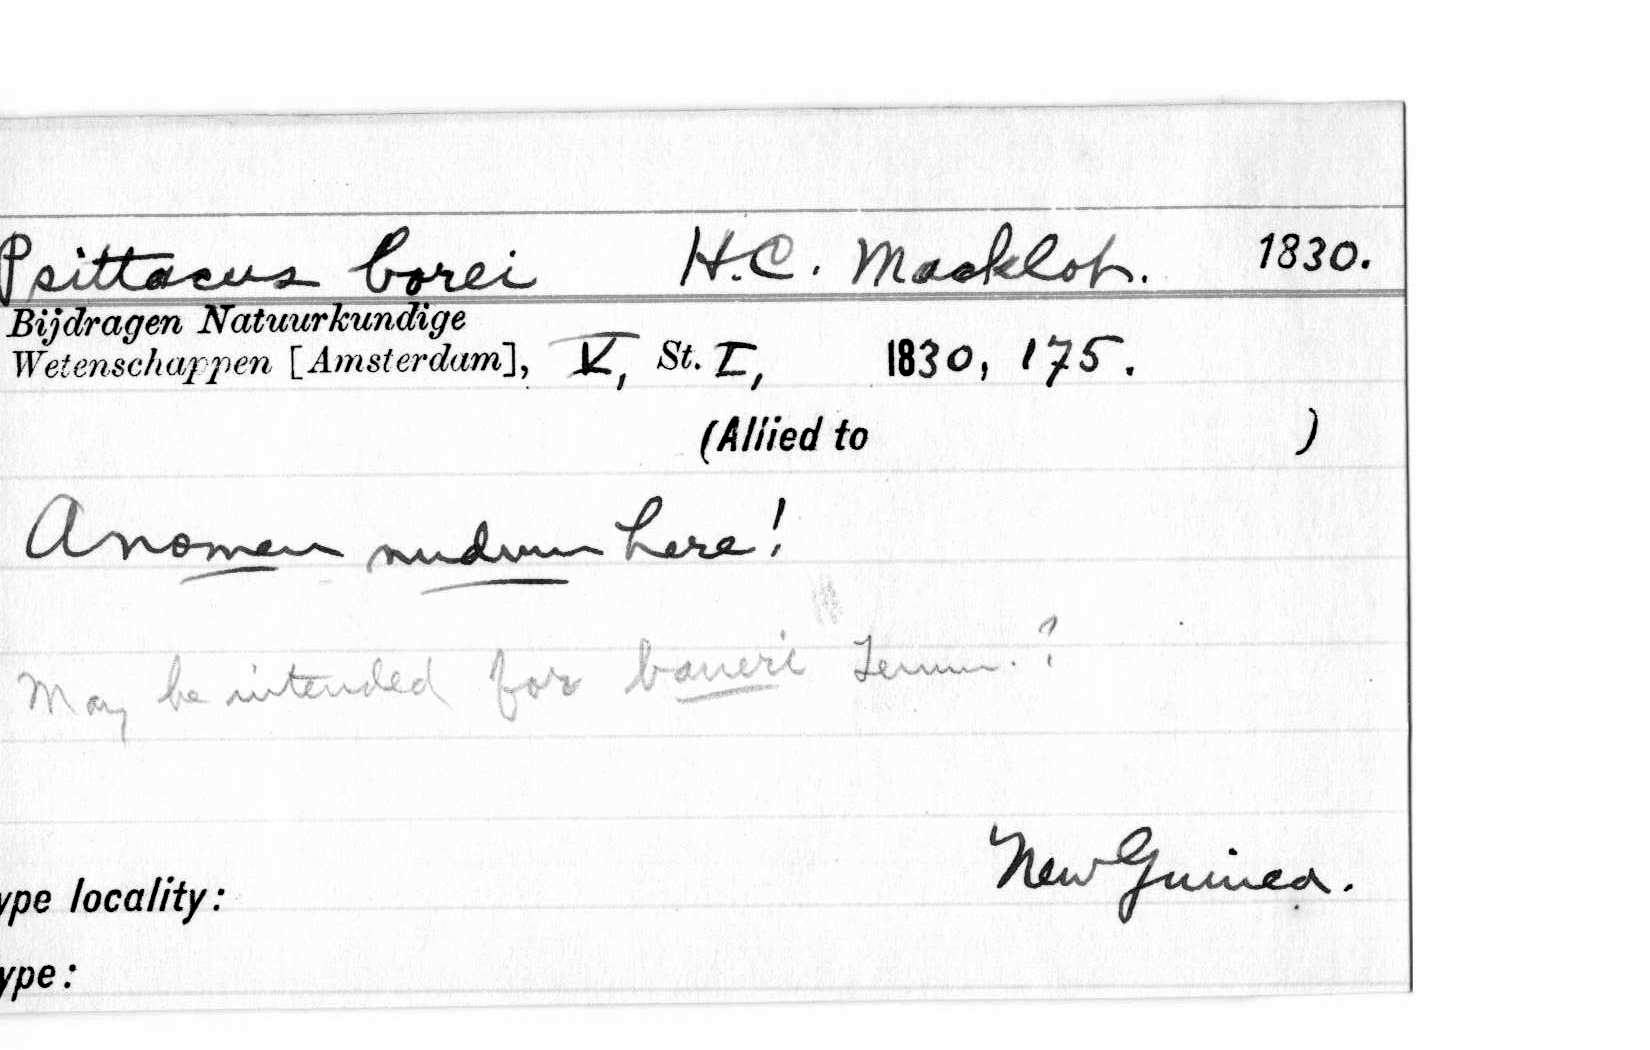 Psittacus borei H.C. Macklot. 1830.
Bijdragen Natuurkundige
Wetenschappen [Amsterdam], V, St. I, 1830, 175.
(Allied to )
A nomen nudum here!
May be intended for baueri Temm.?
New Guinea.
ype locality:
ype: